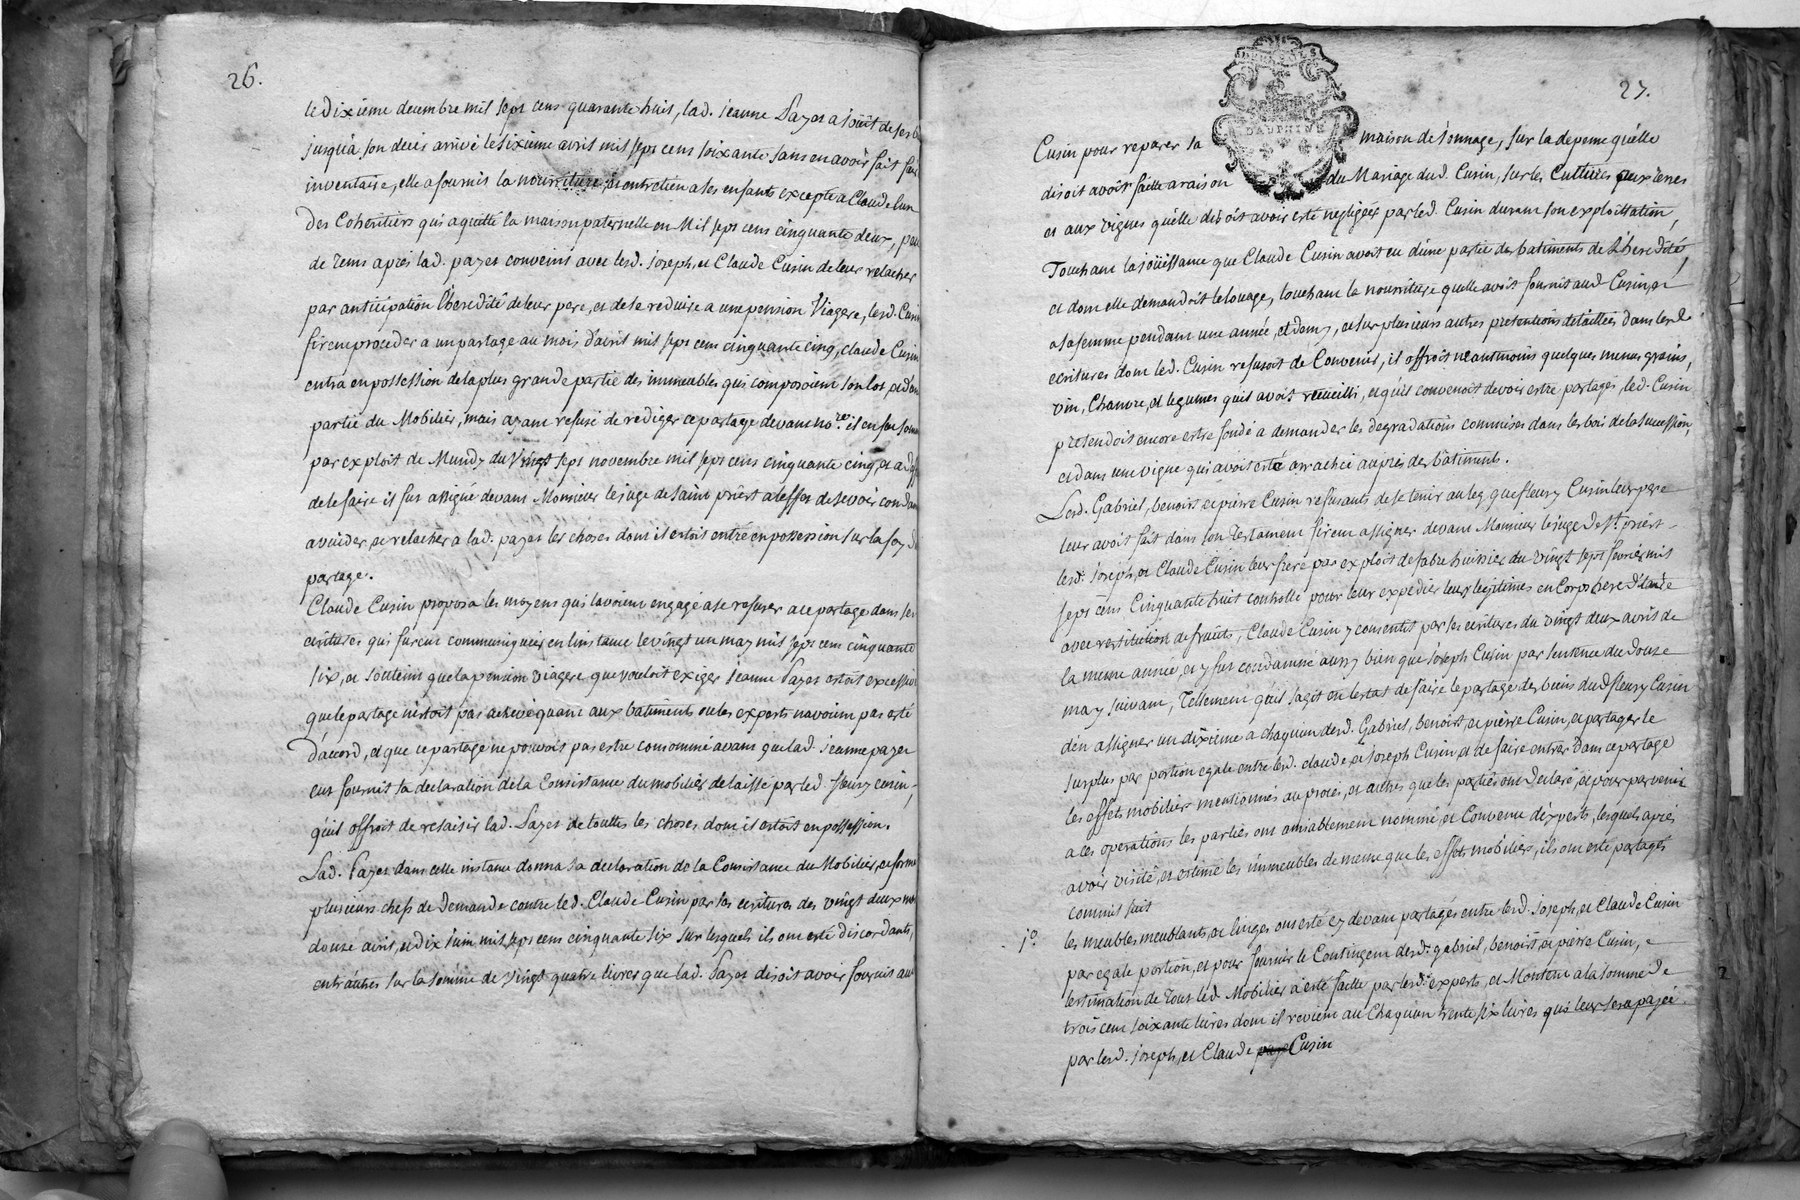 26.
le dixieme decembre mil sept cens quarante huit, lad. jeanne Payet a joüit de ses
jusqu'à son decés arrivé le sixieme avril mil sept cens soixante sans en avoir fait faire
inventaire, elle a fournis la nourriture et entretien a ses enfants excepté a Claude l'un
des Coheritiers qui a quitté la maison paternelle en Mil sept cens cinquante deux, peu
de tems aprés lad. payet conveint avec lesd. joseph, et Claude Cusin de leur relacher
par anticipation l'heredité de leur pere, et de se reduire a une pension Viagere, lesd. Cusin
firent proceder a un partage au mois d'avril mil sept cens cinquante cinq, Claude Cusin
entra en possession de la plus grande partie des immeubles qui composoient son lot, et d'une
partie du Mobilier, mais ayant refusé de rediger ce partage devant no.re il en fut sommé
par exploit de Mundy du Vingt sept novembre mil sept cens cinquante cinq, et a
de le faire il fut assigné devant Monsieur le juge de saint priest a l'effet de se voir condamner
a vuider, et relacher a lad. payet les choses dont il estoit entré en possession sur la foy du
partage.
Claude Cusin proposa les moyens qui l'avoient engagé a se refuser a ce partage dans les
ecritures qui furent communiquées en l'instance le vingt un may mil sept cens cinquante
six, et soutenir que la pension viagere que vouloit exiger jeanne Payet estoit excessive
que le partage n'estoit pas achevé quant aux batiments ou les experts n'avoient pas esté
d'accord, et que ce partage ne pouvoit pas estre consommé avant que lad. jeanne payet
eut fournit sa declaration de la Consistance du mobilier delaissé par led. fleury cusin,
qu'il offroit de resaisir lad. Payet de touttes les choses dont il estoit en possession.
Lad. Payet dans cette instance donna sa declaration de la Consistance du Mobilier, et forma
plusieurs chefs de Demande contre led. Claude Cusin par ses ecritures des vingt deux mars
douze avril, et dix juin mil sept cens cinquante six sur lesquels ils ont esté discordants,
entr'autres sur la somme de vingt quatre livres que lad. Payet disoit avoir fournit aud.
27.
DAUPHINE
Cusin pour reparer sa maison de sonnage, sur la depense qu'elle
disoit avoir faitte a raison du Mariage dud. Cusin, sur les Cultures aux terres
et aux vignes qu'elle disoit avoir esté negligées par led. Cusin durant son exploittation,
Touchant la joüissance que Claude Cusin avoit eu d'une partie des batiments de l'heredité,
et dont elle demandoit le loüage, touchant la nourriture qu'elle avoit fournit aud. Cusin, et
a sa femme pendant une année, et demy, et sur plusieurs autres pretentions detaillées dans lesd.
ecritures dont led. Cusin refusoit de Convenir, il offroit neantmoins quelques menus grains,
vin, Chanvre, et legumes qu'il avoit recueilli, et qu'il convenoit devoir estre partagés, led. Cusin
pretendoit encore estre fondé a demander les degradations commises dans les bois de la succession,
et dans une vigne qui avoit esté arrachée auprès des bâtiments.
Lesd. Gabriel, benoist et pierre Cusin refusants de se tenir au leg que fleury Cusin leur pere
leur avoit fait dans son Testament firent assigner devant Monsieur le juge de S.t priest
lesd. joseph, et Claude Cusin leur frere par exploit de fabre huissier du vingt sept fevrier mil
sept cens Cinquante huit controllé pour leur expedier leurs legitimes en Corps hereditaire
avec restitution de fruits, Claude Cusin y consentit par ses ecritures du vingt deux avril de
la meme année, et y fut condamné aussy bien que joseph Cusin par sentence du douze
may suivant, Tellement qu'il s'agit en l'estat de faire le partage des biens dud. fleury Cusin
d'en assigner un dixieme a chaquun desd. Gabriel, benoist et pierre Cusin, et partager le
surplus par portion egale entre lesd. claude et joseph Cusin et de faire entrer dans ce partage
les effets mobiliers mentionnés au procés, et autres que les parties ont declaré, et pour parvenir
a ces operations les parties ont amiablement nommé, et Convenu d'experts, lesquels aprés
avoir visité, et estimé les immeubles de meme que les effets mobiliers, ils ont esté partagés
comme suit
1.o les meubles meublants, et linges ont esté cy devant partagés entre lesd. joseph, et Claude Cusin
par egale portion, et pour fournir le Contingent desd. gabriel, benoist, et pierre Cusin,
l'estimation de Tout led. Mobilier a esté faitte par lesd. experts, et Montent a la somme de
trois cent soixante livres dont il revient au Chaquun trente six livres qui leur sera payée
par lesd. joseph, et Claude Cusin